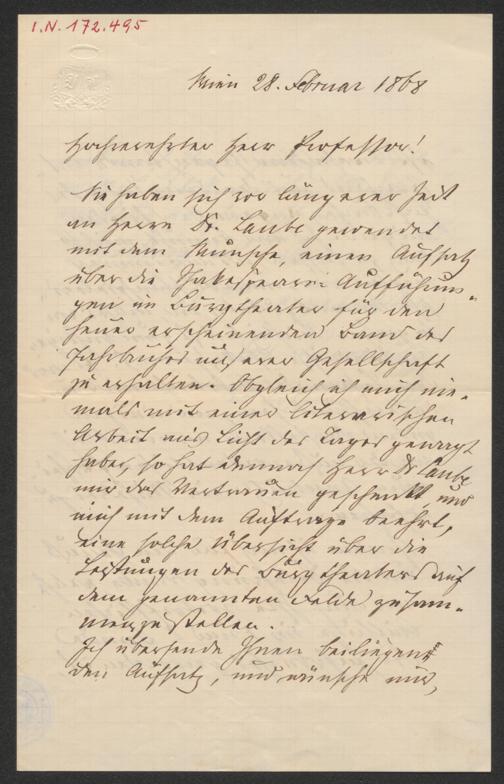 I.N. 172.495
Wien 28. Februar 1868
Hochverehrter Herr Professor!
Sie haben sich vor längerer Zeit
an Herrn Dr. Laube gewendet
mit dem Wunsche, einen Aufsatz
über die Shakespeare-Aufführun-
gen im Burgtheater für den
heuer erscheinenden Band des
Jahrbuches unserer Gesellschaft
zu erhalten. Obgleich ich mich nie-
mals mit einer literarischen
Arbeit ans Licht des Tages gewagt
habe, so hat dennoch Herr Dr Laube
mir das Vertrauen geschenkt, und
mich mit dem Auftrage beehrt,
eine solche Übersicht über die
Leistungen des Burgtheaters auf
dem genannten Felde zusam-
menzustellen.
Ich übersende Ihnen beiliegend
den Aufsatz, und wünsche nur,